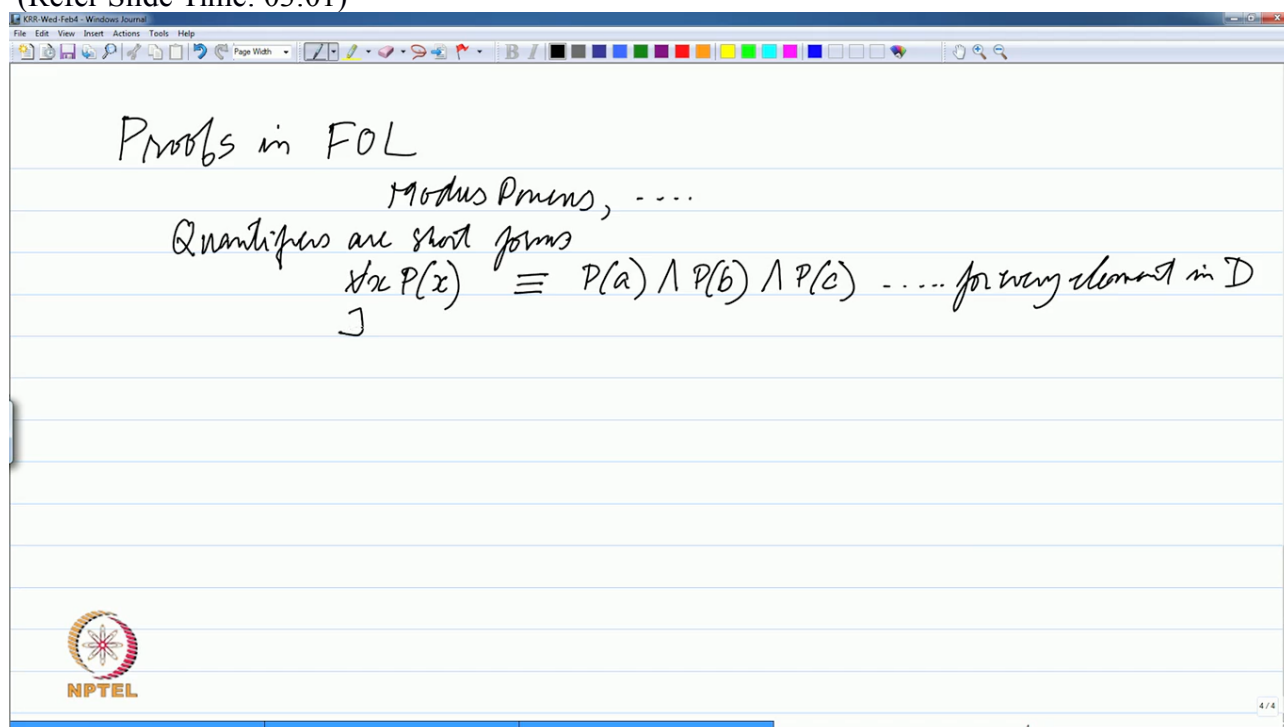 (Refer Slide Time: 05:01)
KRR-Wed-Feb4 - Windows Journal
File Edit View Insert Actions Tools Help
Page Width
B I
Proofs in FOL
Modus Ponens, ....
Quantifiers are short forms
∀x P(x) ≡ P(a) ∧ P(b) ∧ P(c) ..... for every element in D
∃
NPTEL
4 / 4